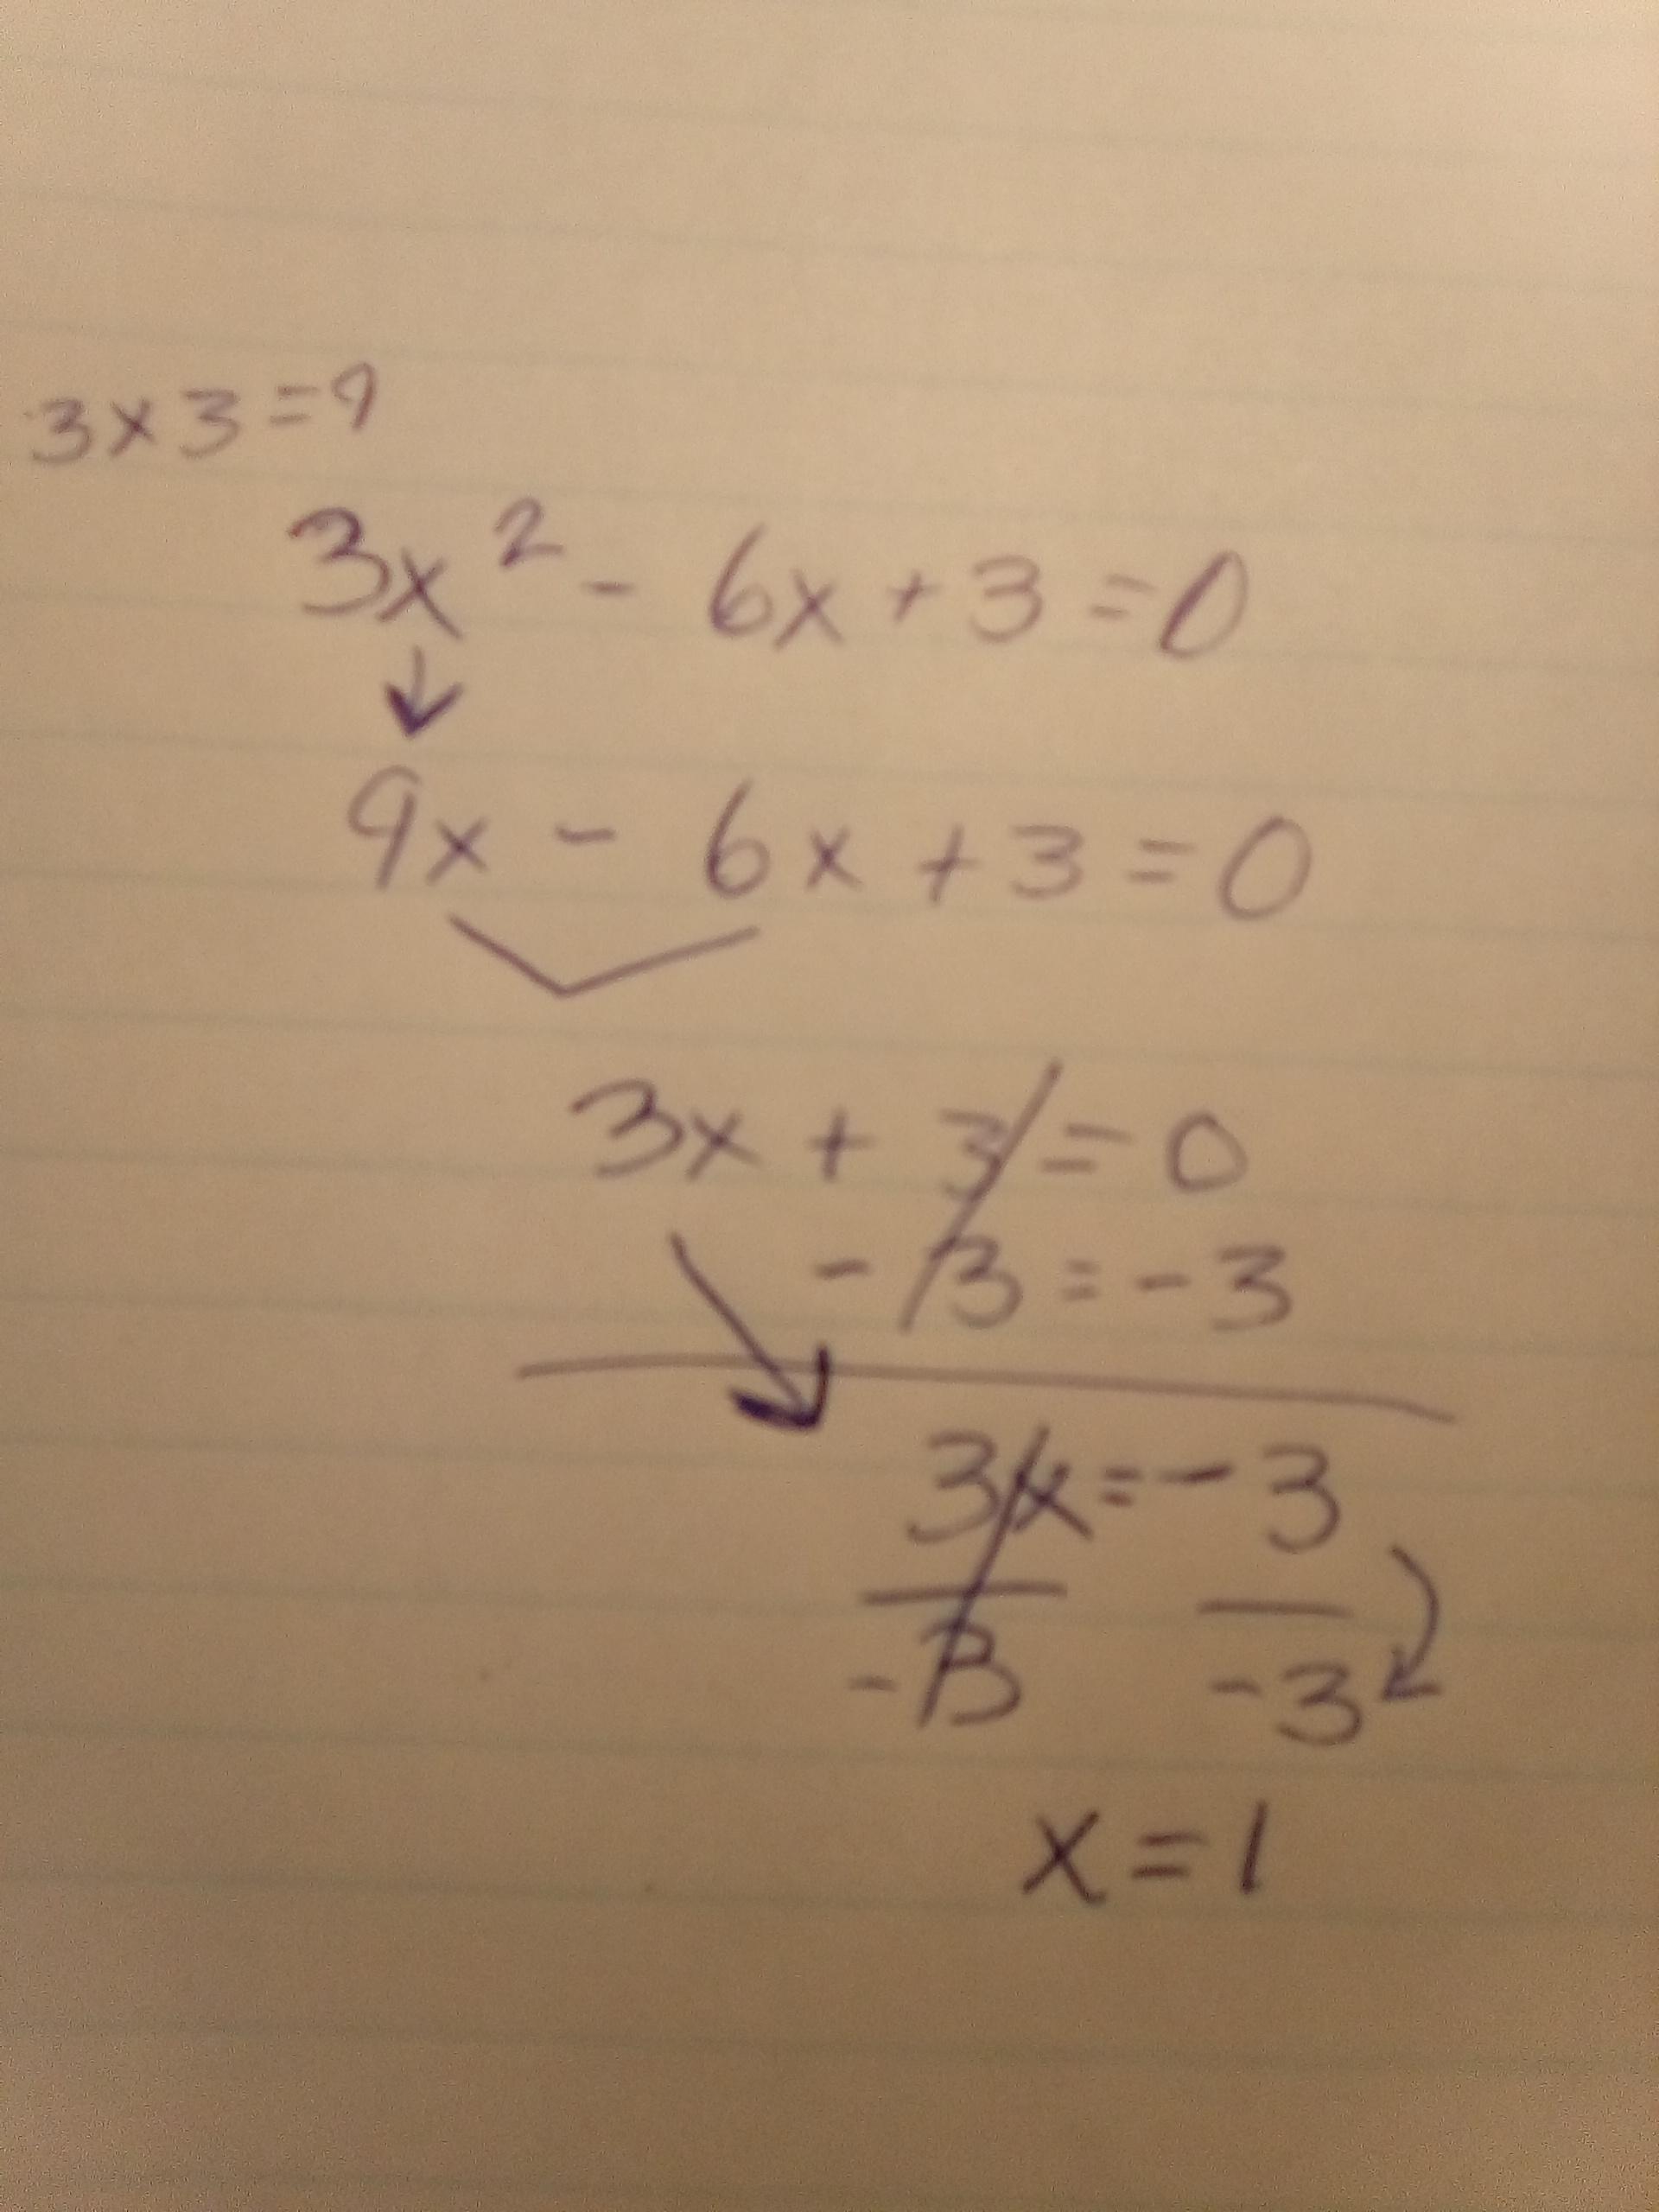 3x3=9
3x² - 6x+3=0
9x - 6x+3=0
3x + 3=0
-3=-3
3x=-3
-3 -3
x=1